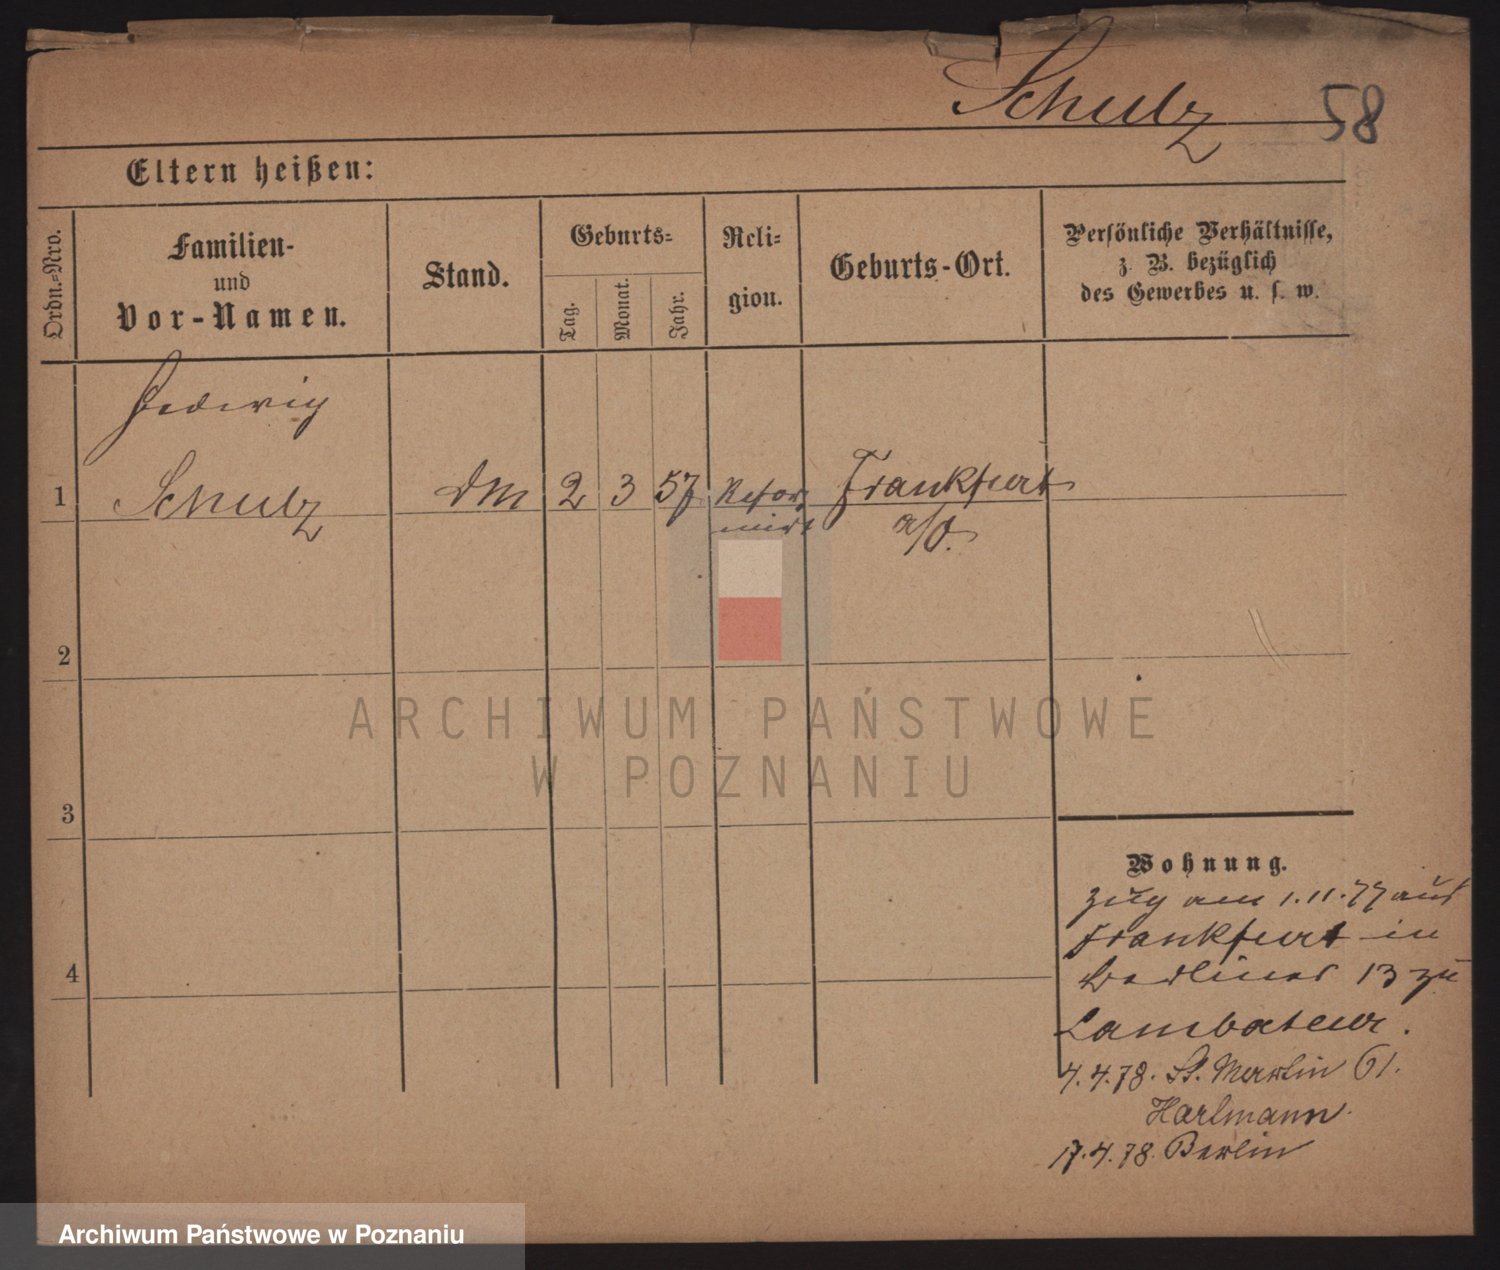 Schulz 58
Eltern heißen:
Ordn.-Nro.
Familien-
und
Vor-Namen.
Stand.
Geburts-
Tag.
Monat.
Jahr.
Reli-
gion.
Geburts-Ort.
Persönliche Verhältnisse,
z. B. bezüglich
des Gewerbes u. s. w.
Hedwig
1 Schulz DM 2 3 57 Refor Frankfurt
mirt a/O.
2
3
4
Wohnung.
Zug am 1.11.77 aus
Frankfurt in
Berliner 13 zu
Lambateur.
4.4.78. St. Martin 61.
Hartmann.
17.4.78. Berlin
ARCHIWUM PAŃSTWOWE
W POZNANIU
Archiwum Państwowe w Poznaniu